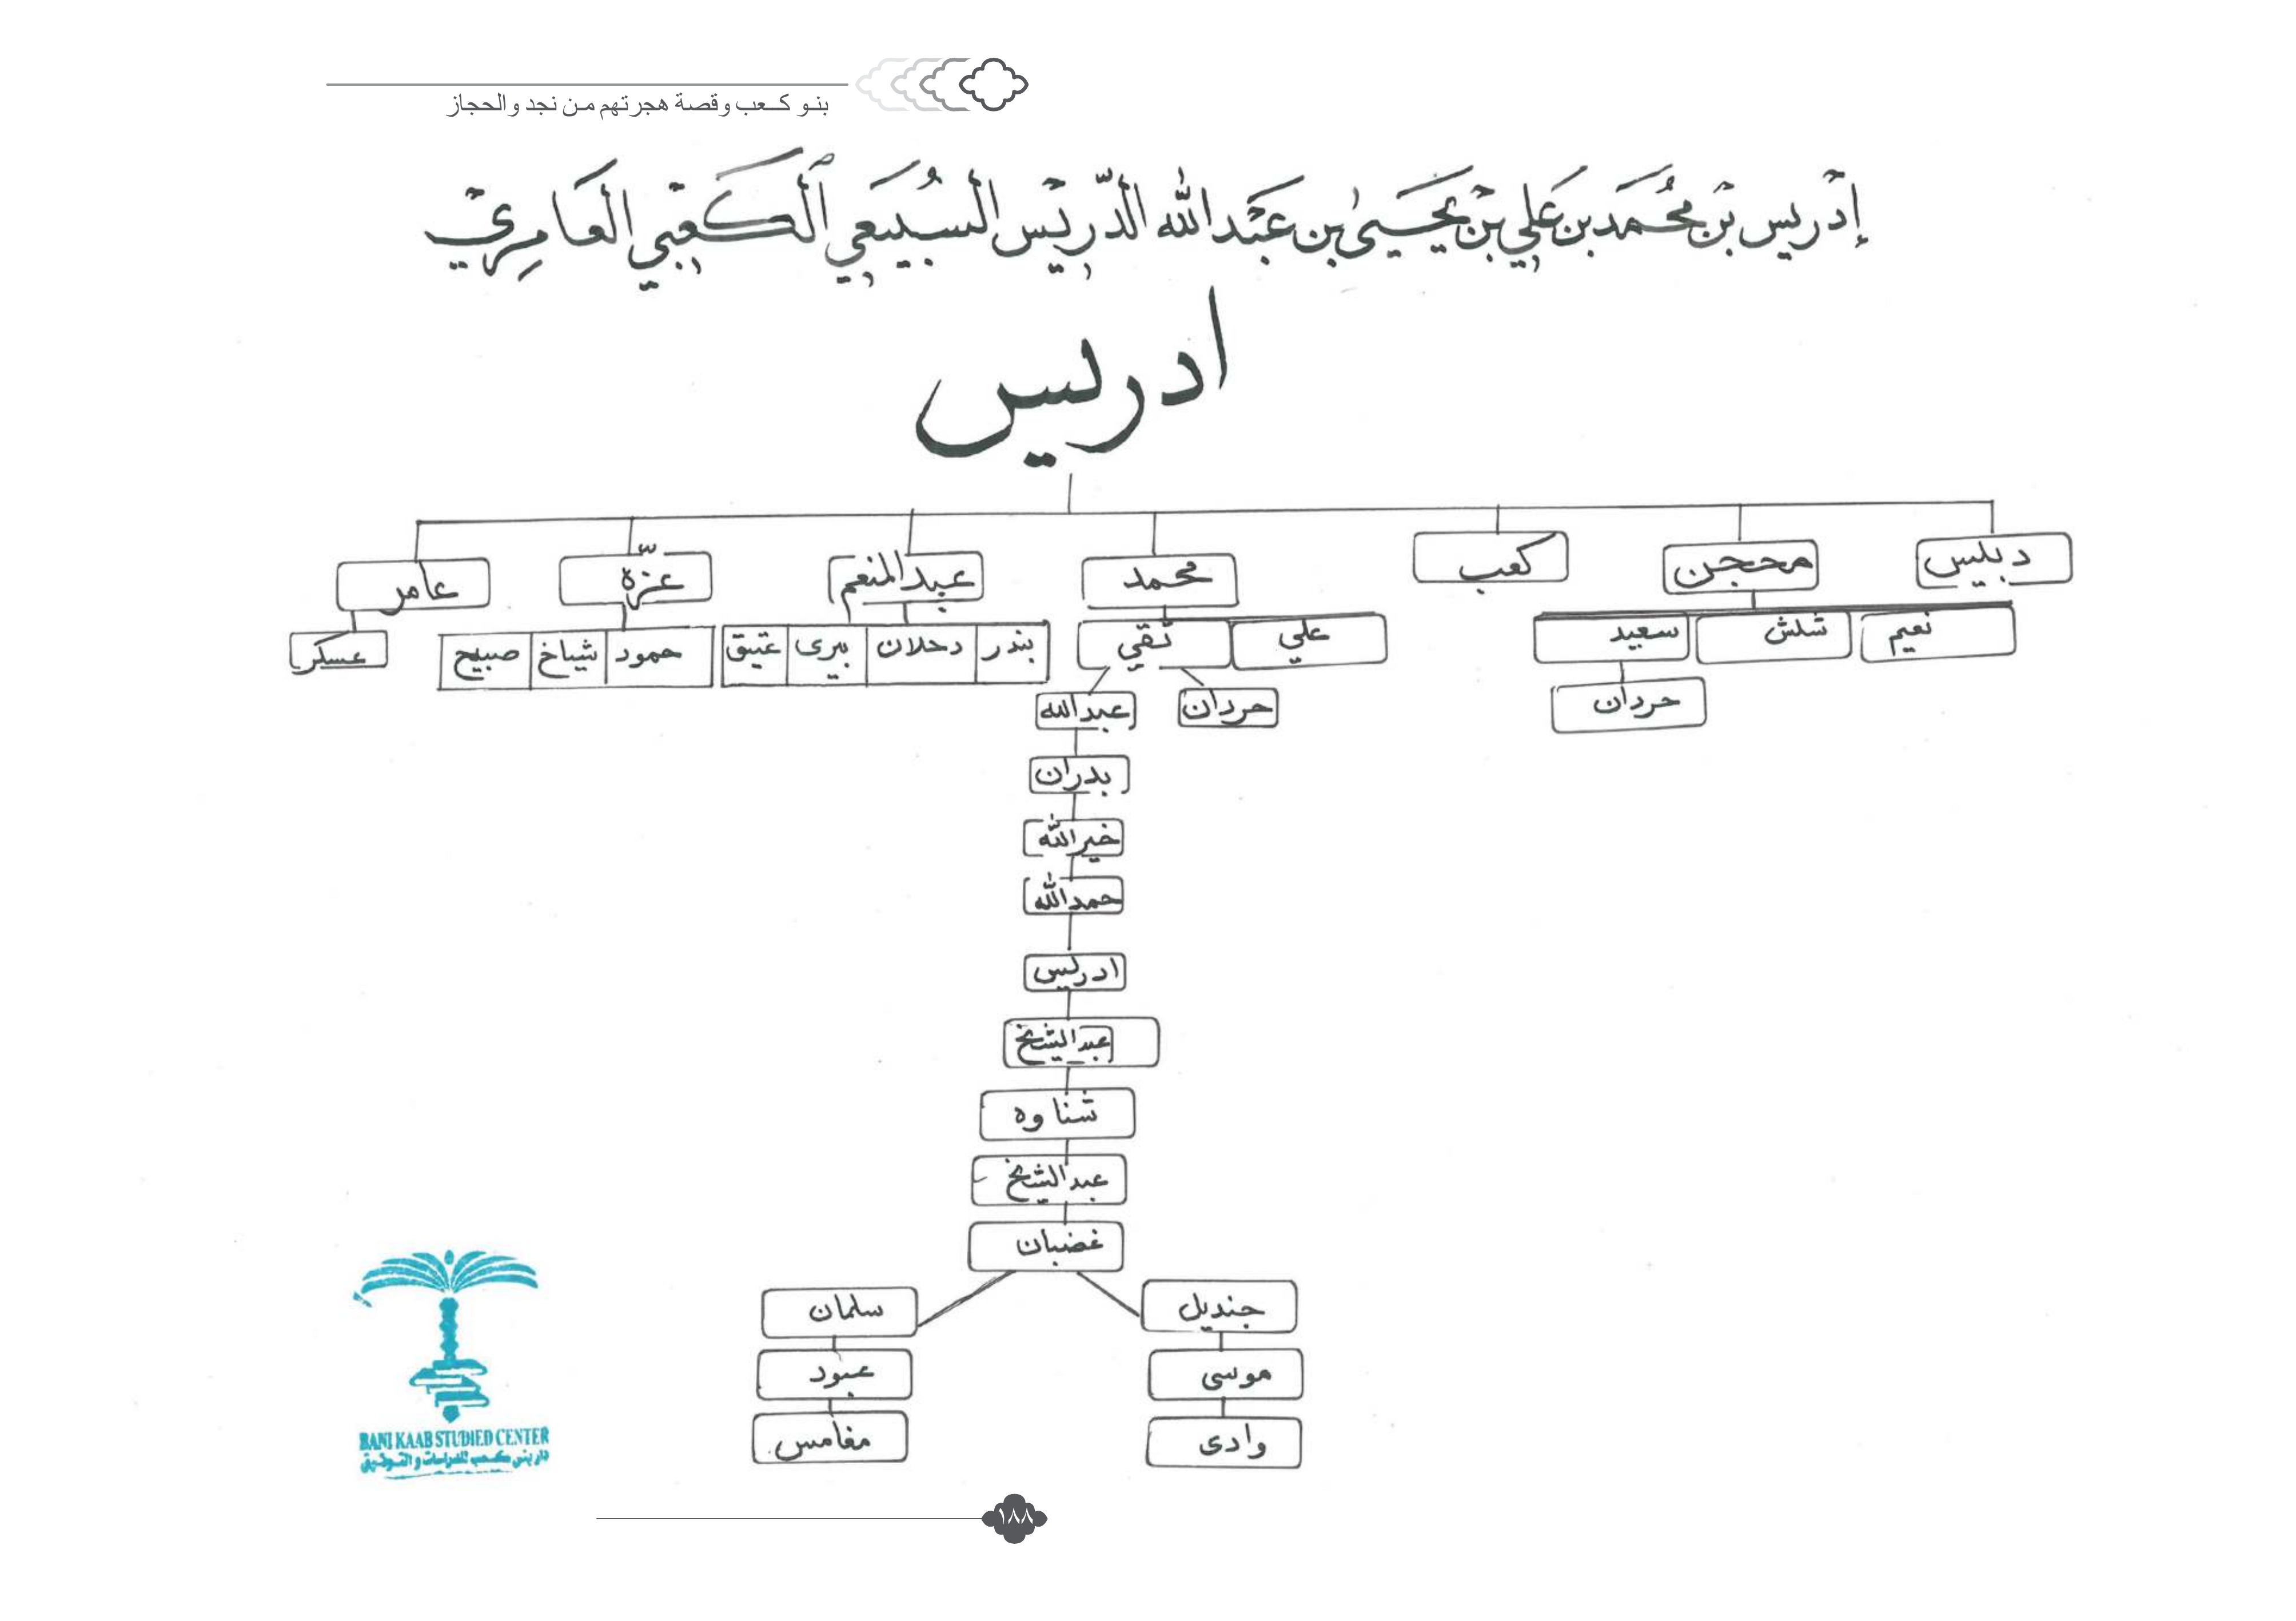 بنو كعب وقصة هجرتهم من نجد والحجاز
إدْريس بْن مُحَمد بن عَلي بْن يَحَيىٰ بن عَبْد الله ألدّريْس ألسُبَيعي ألكَعْبي العَامِريْ
ادريس
دبليس محجن كعب محمد عبدالمنعم عزّة عامر
نعيم شلش سعيد علي تقي بندر دحلان بيرى عتيق حمود شياخ صبيح عسكر
حردان حردان عبدالله
بدران
خيرالله
حمدالله
ادريس
عبدالشيخ
شناوه
عبدالشيخ
غضبان
جنديل سلمان
موسى عبود
وادى مغامس
BANI KAAB STUDIED CENTER
دار بني كعب للدراسات والتوثيق
١٨٨